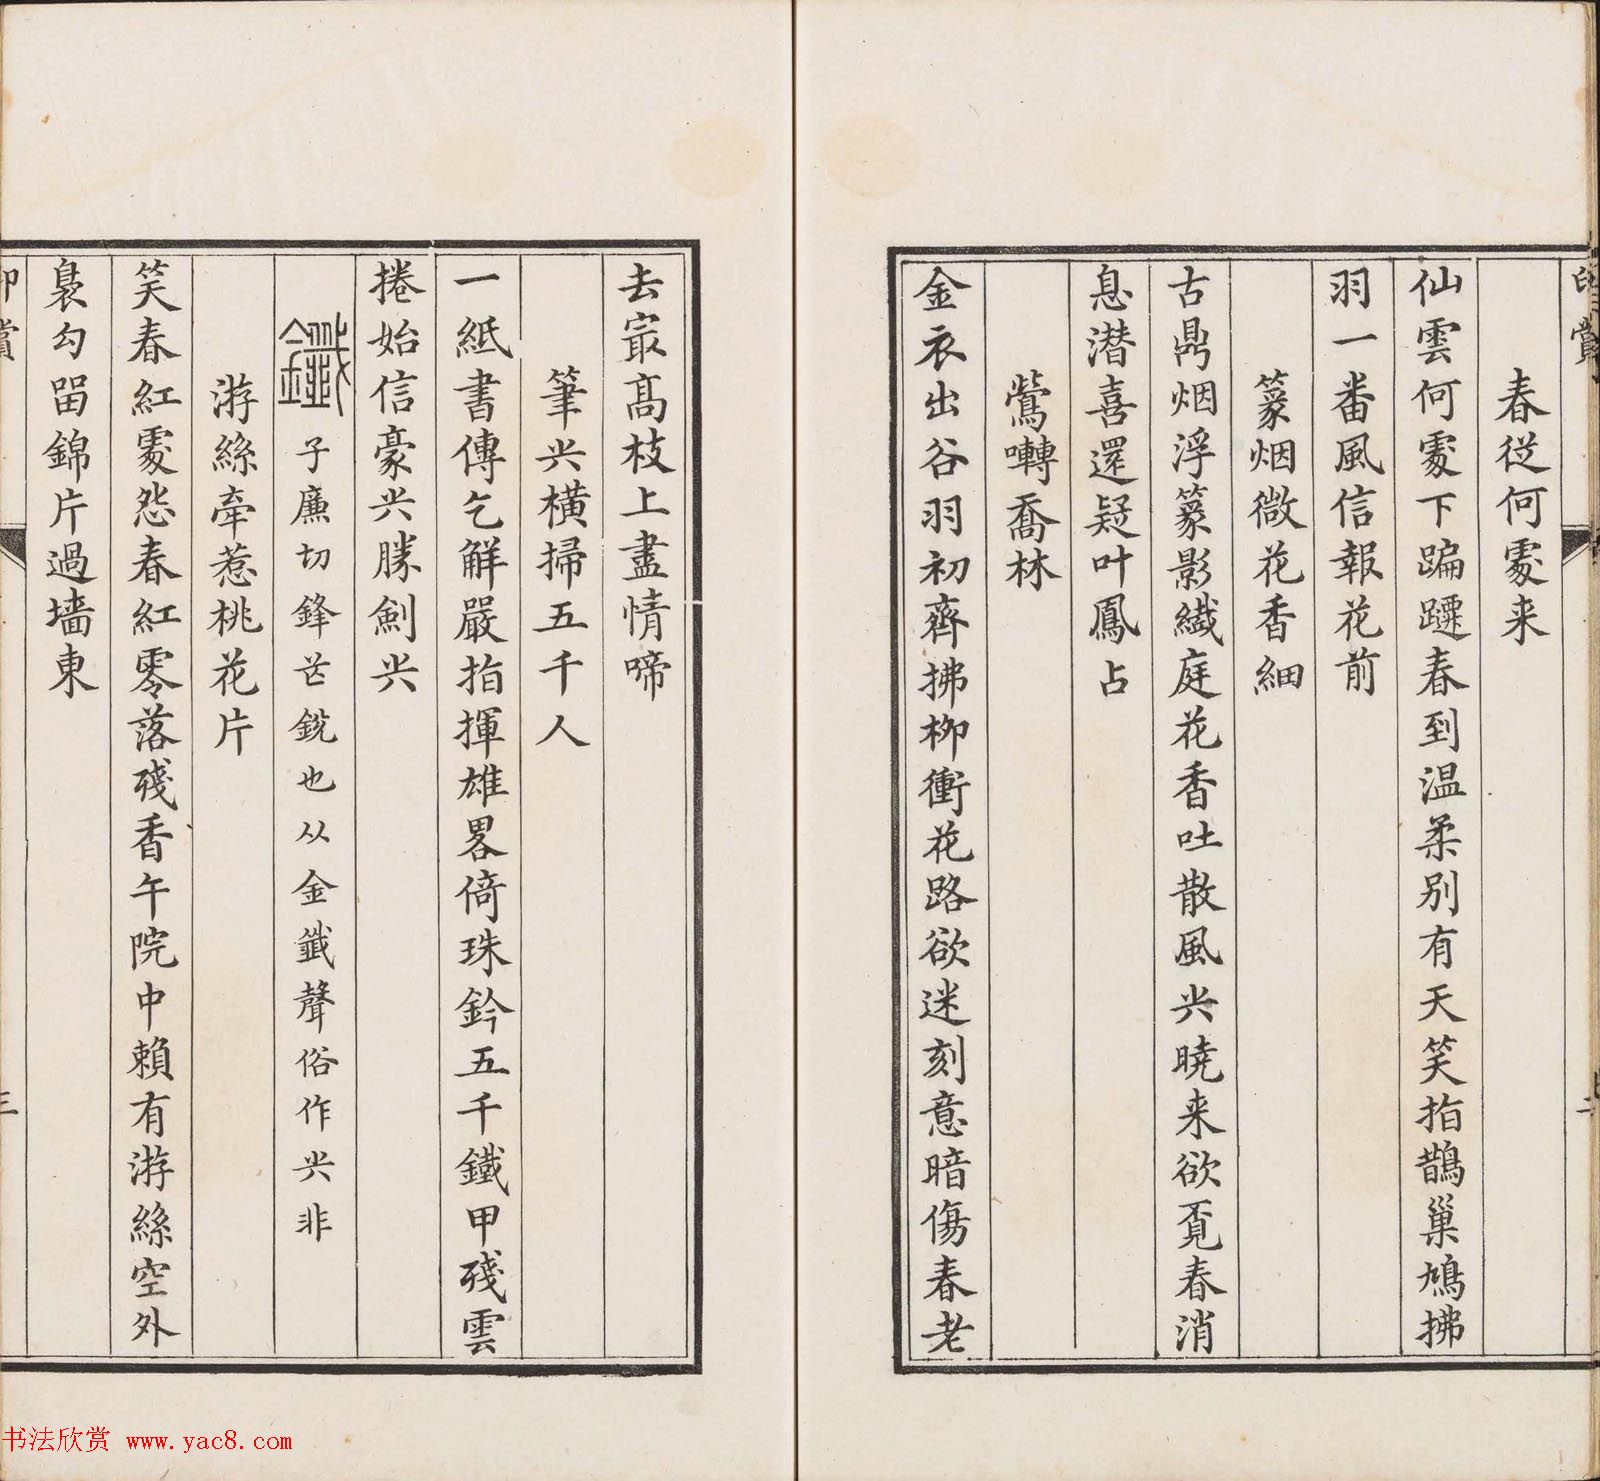 春從何䖏来
仙雲何䖏下蹁躚春到温柔别有天笑指鵲巢鳩拂
羽一番風信報花前
篆烟微花香細
古鼎烟浮篆影纖庭花香吐散風兴曉来欲覔春消
息潜喜還疑叶鳳占
鶯囀喬林
金衣出谷羽初齊拂柳衝花路欲迷刻意暗傷春老
去冣髙枝上盡情啼
筆兴横掃五千人
一紙書傳乞解嚴指揮雄畧倚珠鈐五千鐵甲殘雲
捲始信豪兴勝劍兴
鑯子廉切鋒芒銳也从金韱聲俗作兴非
游絲牽惹桃花片
笑春紅䖏怨春紅零落殘香午院中賴有游絲空外
裊勾畱錦片過墻東
賞
三
书法欣赏 www.yac8.com